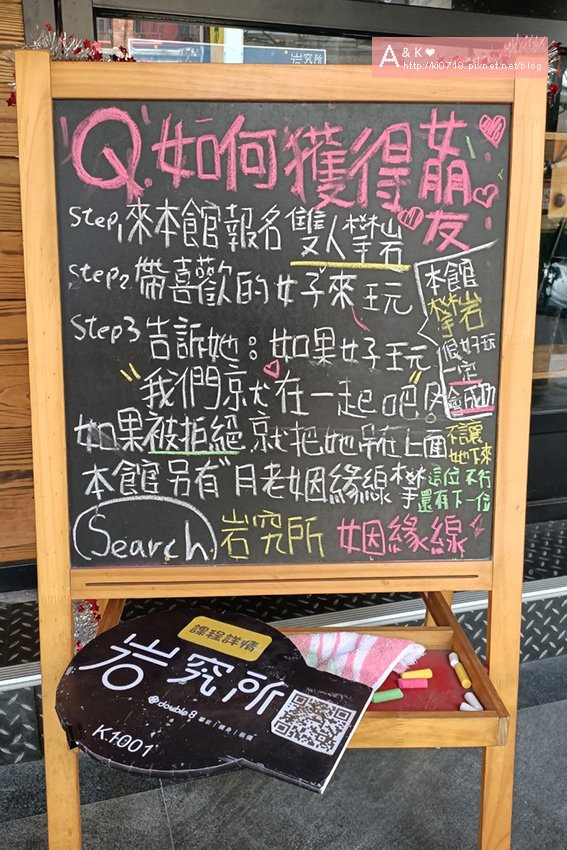 A & K ❤
http://ki0718.pixnet.net/blog
岩究所
Q:如何獲得女朋友
Step1 來本館報名雙人攀岩
step2 帶喜歡的女子來玩
Step3 告訴她:如果好玩
"我們就在一起吧"
本館
攀岩
很好玩
一定
會成功
如果被拒絕就把她吊在上面
不讓
她下來
本館另有"月老姻緣線"攀
這位不行
還有下一位
Search 岩究所 姻緣線
課程詳情
岩究所
double8
K1001